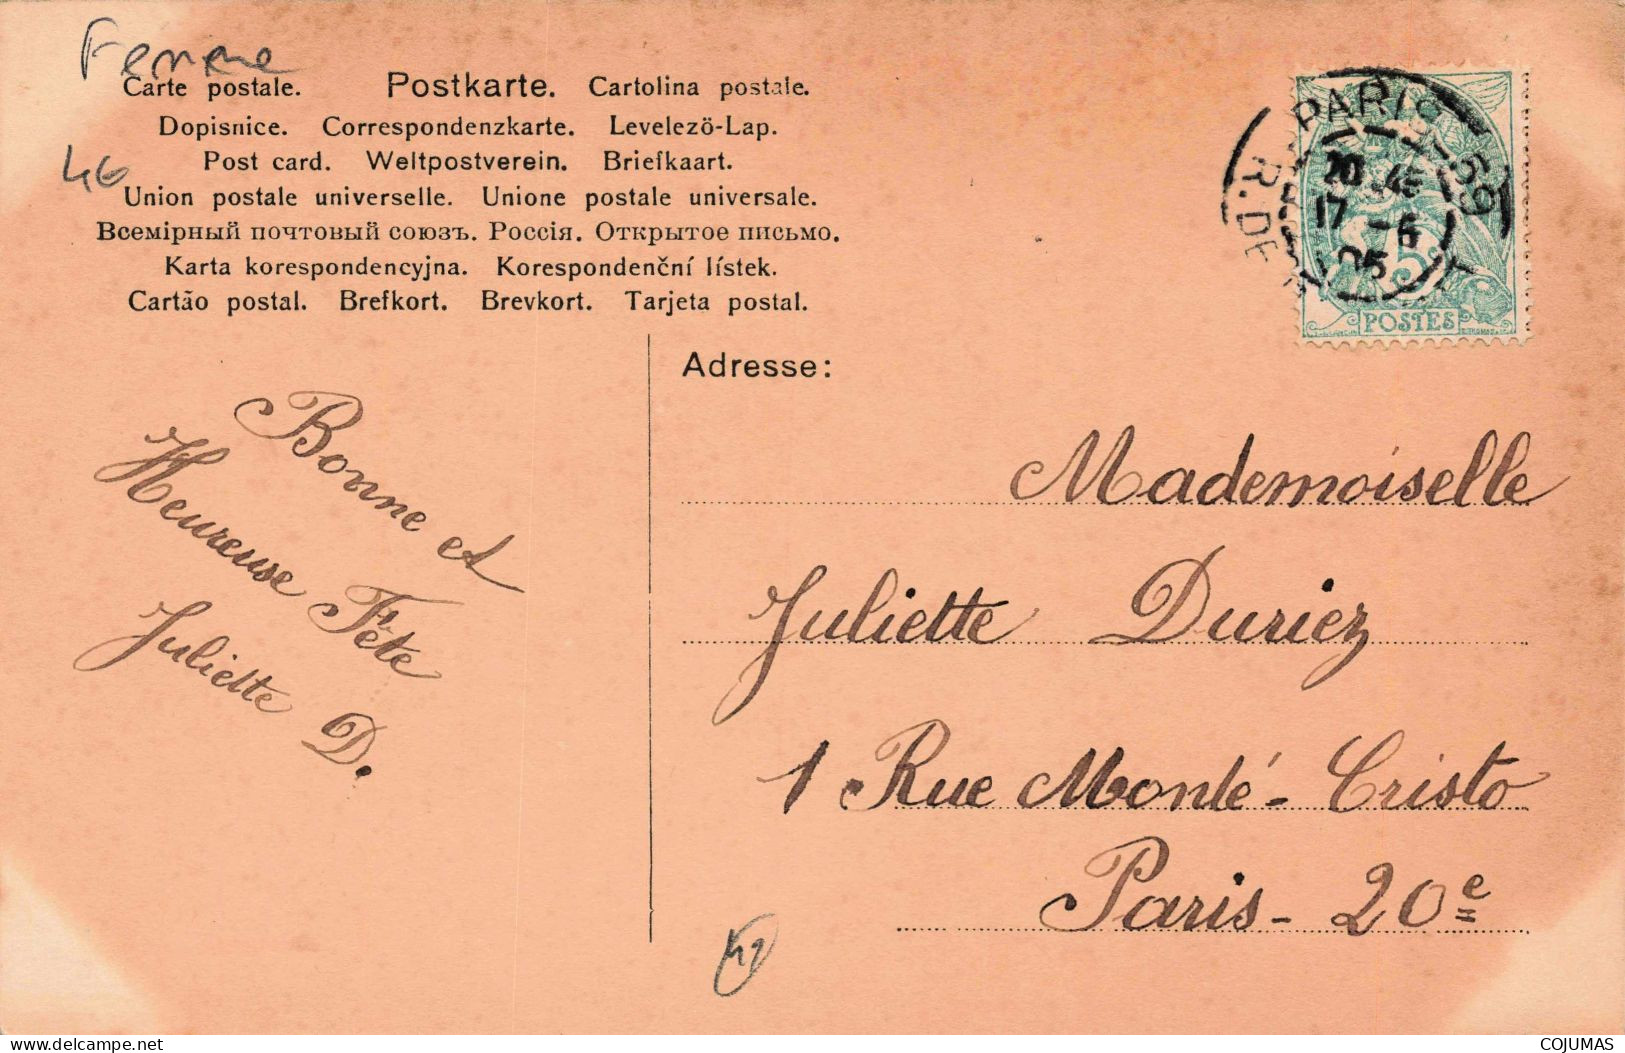 Femme
Carte postale. Postkarte. Cartolina postale.
Dopisnice. Correspondenzkarte. Levelező-Lap.
46
Post card. Weltpostverein. Briefkaart.
Union postale universelle. Unione postale universale.
Всемірный почтовый союзъ. Россія. Открытое письмо.
Karta korespondencyjna. Korespondenční lístek.
Cartão postal. Brefkort. Brevkort. Tarjeta postal.
PARIS
R. DE
17 -6
05
5
POSTES
Bonne et
Heureuse Fête
Juliette D.
Adresse:
Mademoiselle
Juliette Duriez
1 Rue Monté-Cristo
Paris- 20e
delcampe.net
COJUMAS